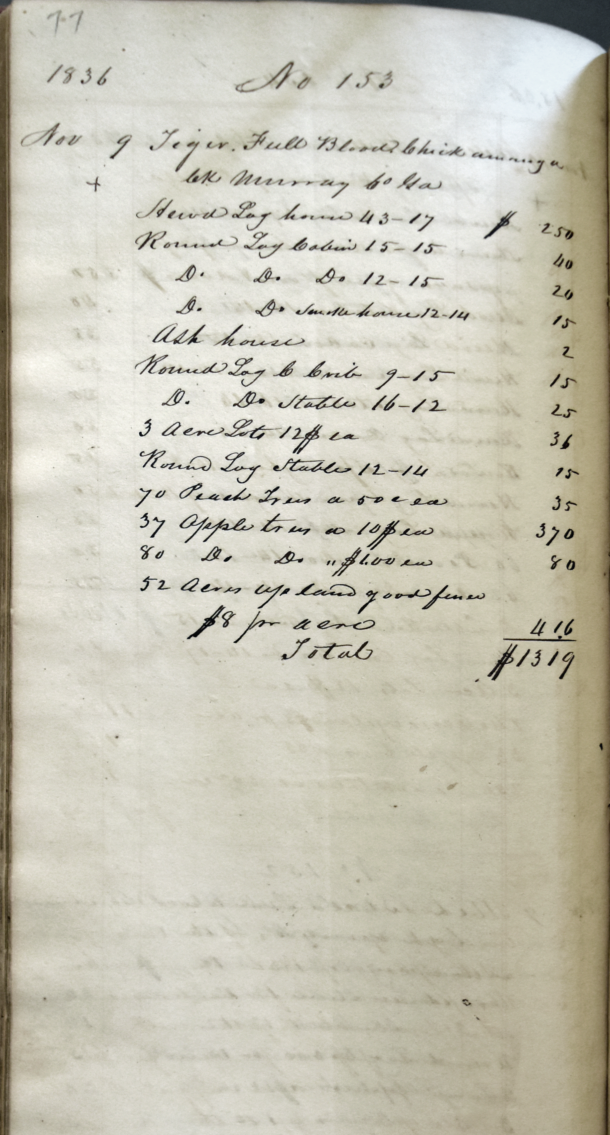 77
1836 No 153
Nov 9 Tiger. Full Blood Chickamauga
+ Ck Murray Co Ga
Hewd Log house 43-17 $ 250
Round Log Cabin 15-15 40
D. D. Do 12-15 20
D. Do Smoke house 12-14 15
Ash house 2
Round Log C Crib 9-15 15
D. Do Stable 16-12 25
3 Acre Lots 12$ ea 36
Round Log Stable 12-14 15
70 Peach Trees a 50c ea 35
37 Apple trees a 10$ ea 370
80 Do Do " $1.00 ea 80
52 Acres upland good fence
$8 pr acre 416
Total $1319